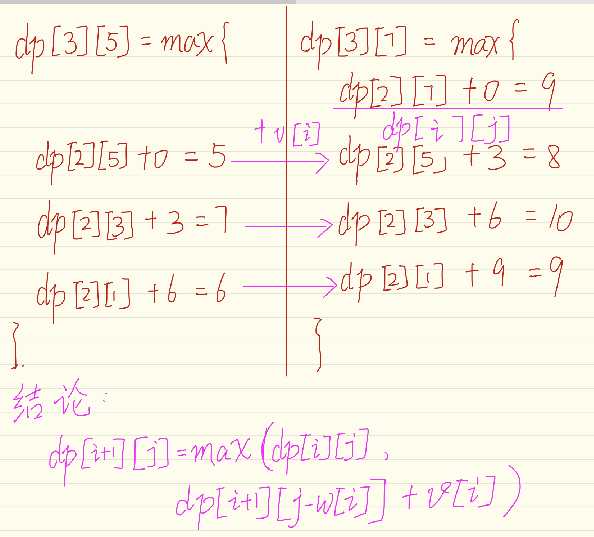 dp[3][5] = max{
dp[2][5] + 0 = 5
dp[2][3] + 3 = 7
dp[2][1] + 6 = 6
}.
dp[3][7] = max{
dp[2][7] + 0 = 9
+v[i]
dp[i][j]
dp[2][5] + 3 = 8
dp[2][3] + 6 = 10
dp[2][1] + 9 = 9
}
结论:
dp[i+1][j]=max(dp[i][j],
dp[i+1][j-w[i]] + v[i])